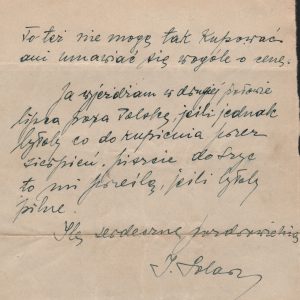 To też nie mogę tak kupować
ani umawiać się wogóle o cenę.
Ja wyjeżdżam w drugiej połowie
lipca poza Polskę, jeśli jednak
byłoby co do kupienia przez
sierpień, piszcie do Szyc
to mi prześlą, jeśli byłoby
pilne.
Ślę serdeczne pozdrowienia
I. Solarz